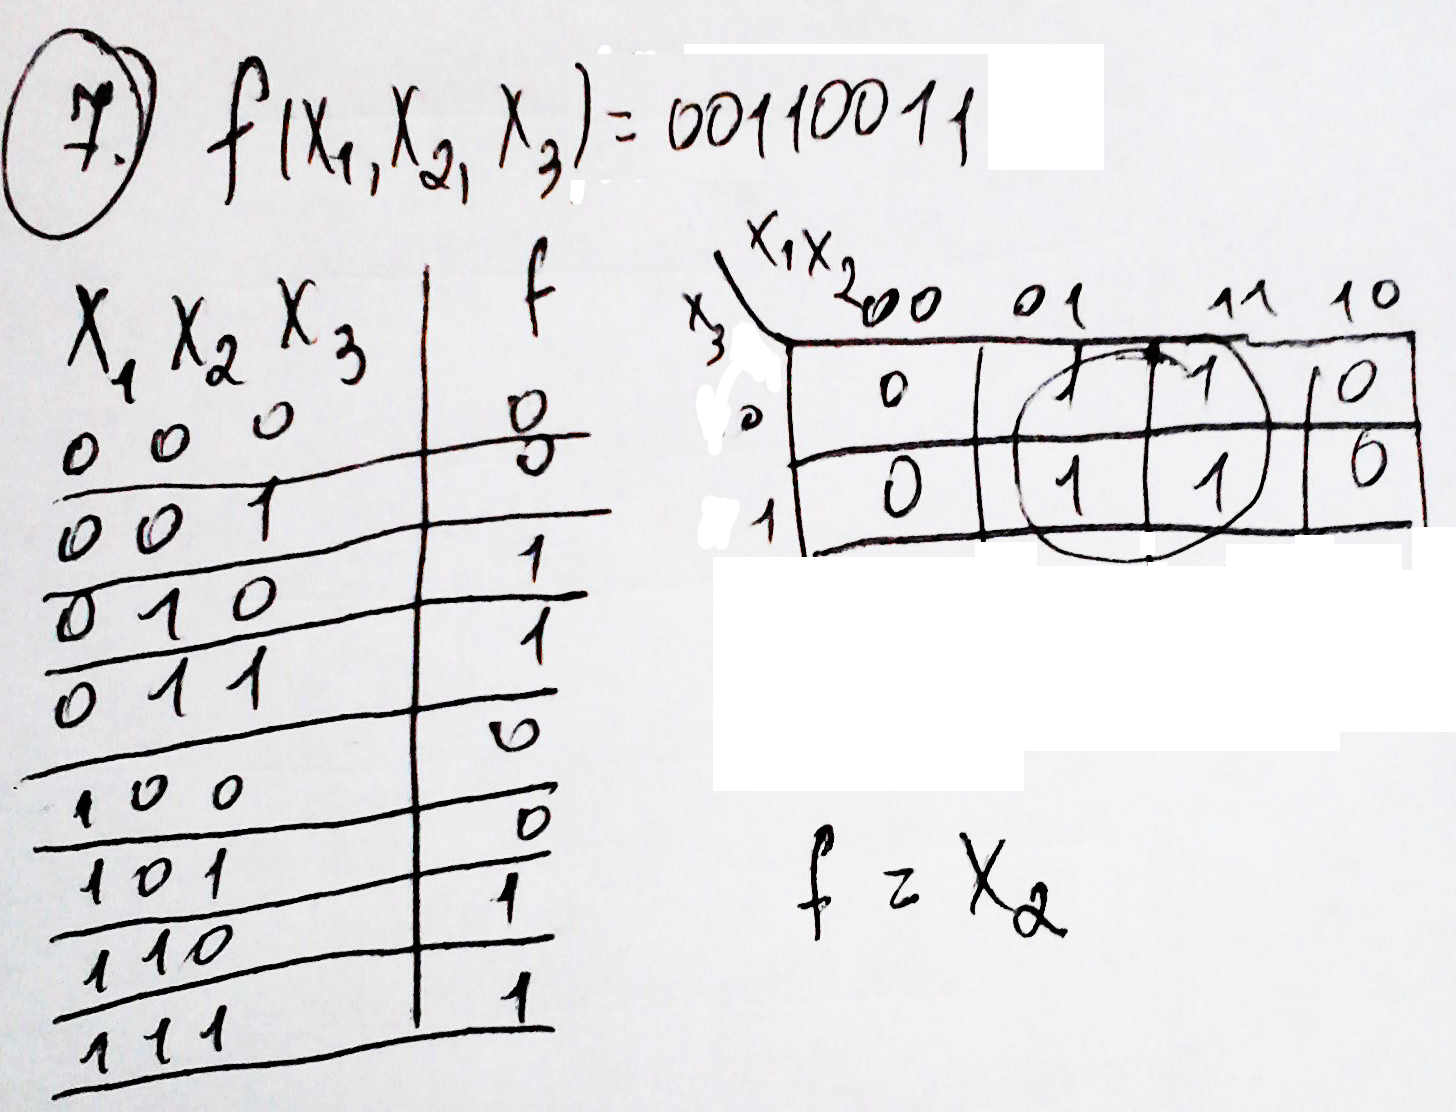 7. f(x₁, x₂, x₃) = 00110011
x₁ x₂ x₃ f
0 0 0 0
0 0 1 0
0 1 0 1
0 1 1 1
1 0 0 0
1 0 1 0
1 1 0 1
1 1 1 1
x₁x₂
x₃ 00 01 11 10
0 0 1 1 0
1 0 1 1 0
f = x₂